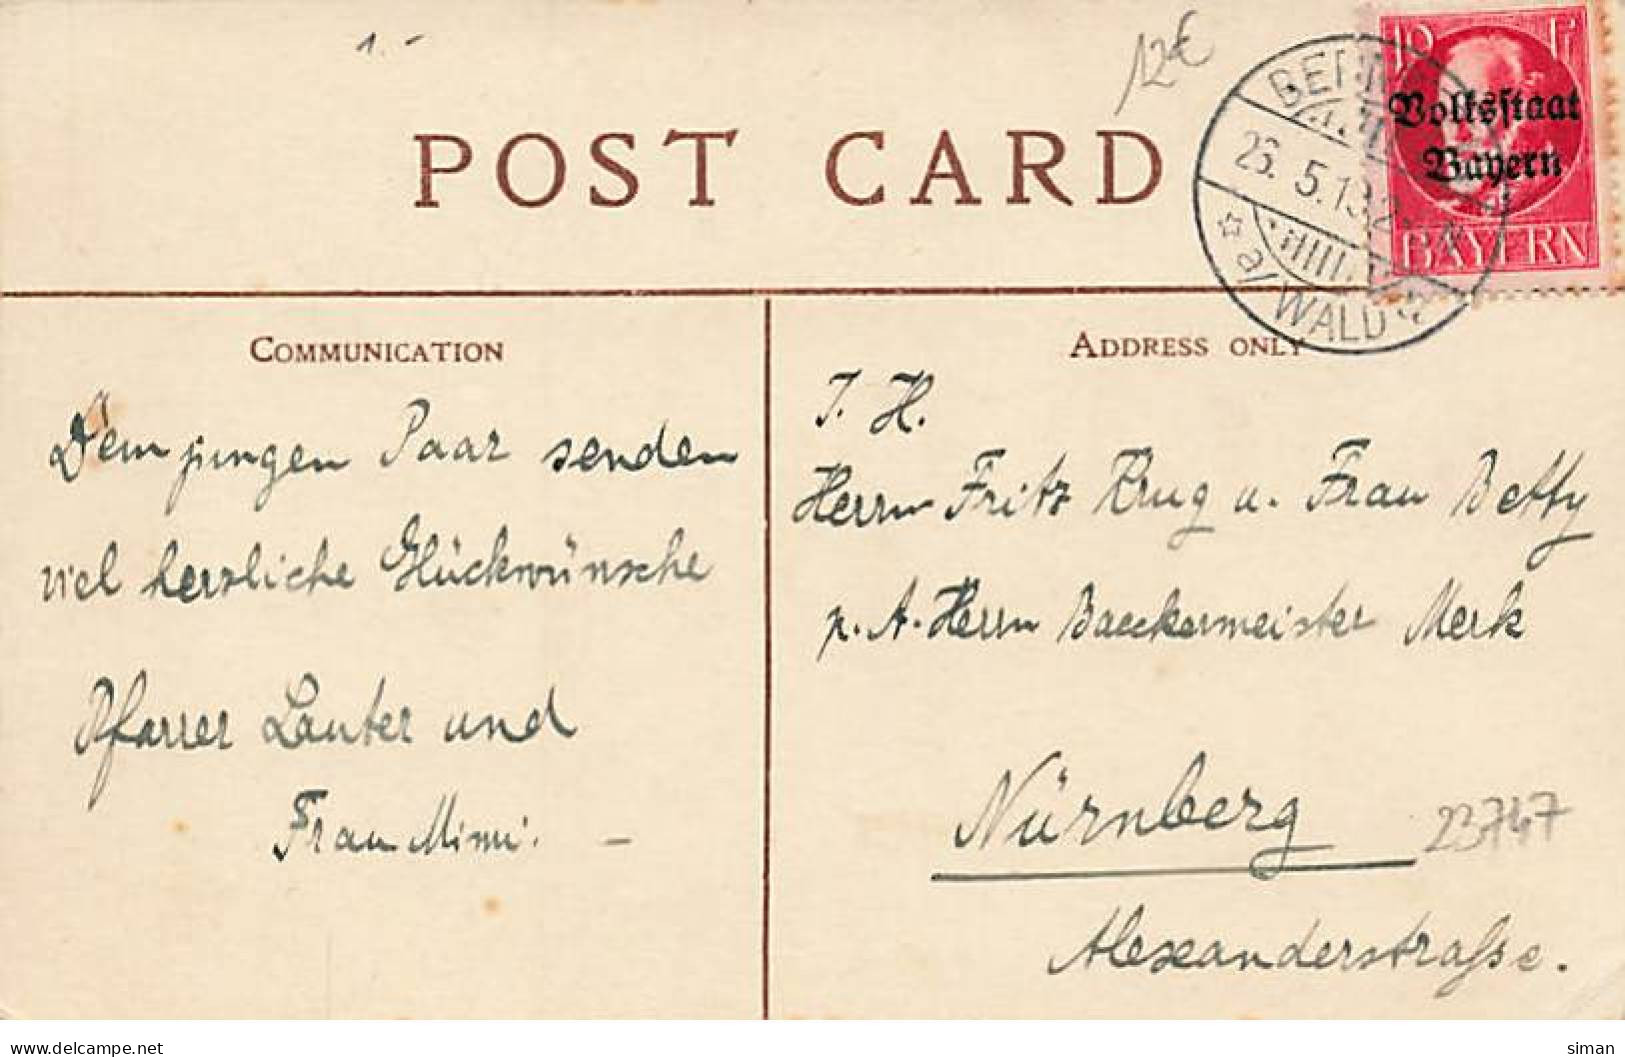 1.-
12€
10 Pf
Volksstaat
Bayern
BAYERN
26. 5.19.
a/WALD
POST CARD
COMMUNICATION
Dem jungen Paar senden
viel herzliche Glückwünsche
Pfarrer Lauter und
Frau Mimi. –
ADDRESS ONLY
T. H.
Herrn Fritz Krug u. Frau Betty
p. A. Herrn Baeckermeister Merk
Nürnberg
23747
Alexanderstraße.
delcampe.net
siman